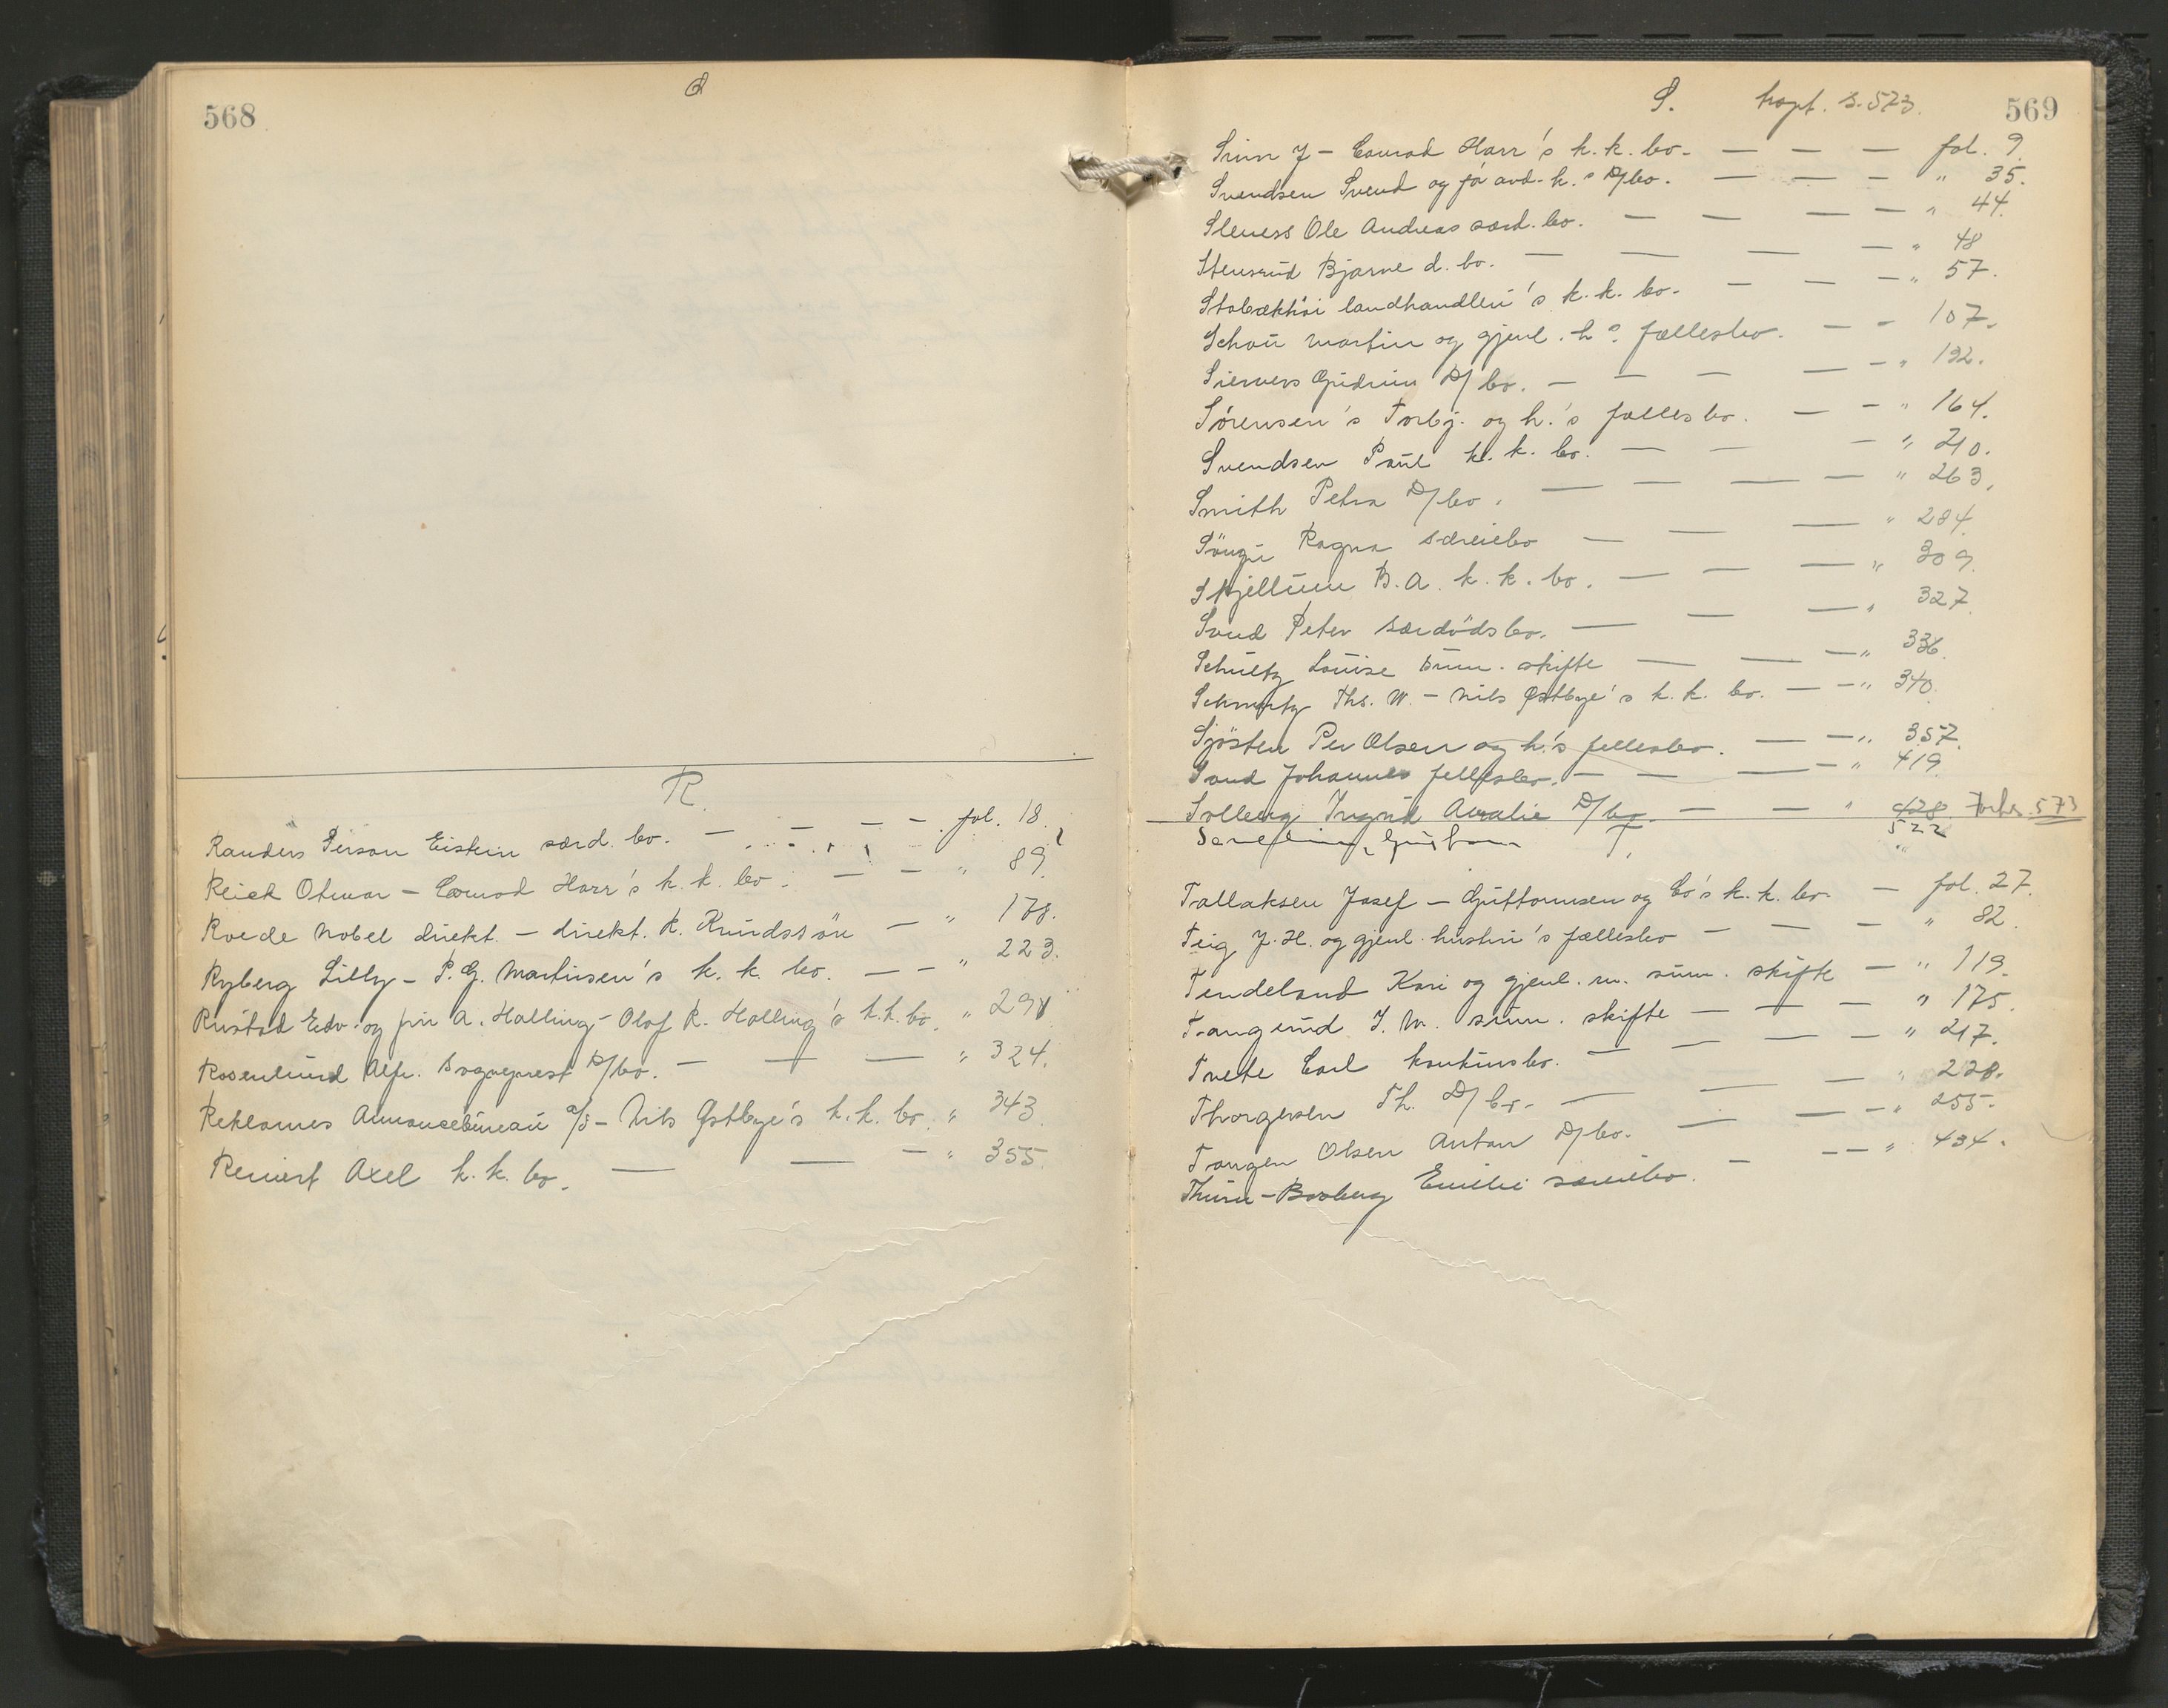 568
Q
R.
Randers Person Eistein særd. bo. — — — — fol. 18.
Reick Otmar — Conrad Harr's k.k. bo. — — " 89.
Roede Nobel direkt. — direkt. K. Knudssön — " 178.
Ryberg Lilly — P. G. Martinsen's k. k. bo. — — " 223.
Rustad Edv. og fru A. Halling — Olaf R. Halling's k.k. bo. " 291
Rosenlund Alfr. Sogneprest D/bo. — — — " 324.
Reklames Annoncebureau a/s — Nils Østbye's k.k. bo. " 343.
Reinert Axel k.k. bo. — — — " 355.
569
S. kopt. s. 573.
Sinn J — Conrad Harr's k.k. bo. — — — fol. 9.
Svendsen Svend og få avd. h.s D/bo. — — — " 35.
Sleness Ole Andreas særd. bo. — — — — " 44.
Stensrud Bjarne d. bo. — — — — " 48
Stabækhöi landhandleri's k.k. bo. — — — " 57.
Schou Martin og gjenl. h.s fællesbo. — — 107.
Sievers Gudrun D/bo. — — — — — " 132.
Sörensen's Torbj. og h.'s fællesbo. — — " 164.
Svendsen Paul k.k. bo. — — — " 210.
Smith Petra D/bo. — — — — " 263.
Ragna særeiebo — — — " 284.
Skjellum B. A. k.k. bo. — — — " 309.
Sand Peter særdödsbo. — — — " 327.
Schultz Louise sum. skifte — — — " 336.
Ths. W. — Nils Østbye's k.k. bo. — — " 340.
Sjösten Per Olsen og h.'s fellesbo. — — " 357.
Sand Johannes fellesbo. — — — — " 419.
Solberg Ingrid Amalie D/bo. — — " 428. 573
522
T
Tallaksen Josef — Guttormsen og Co's k.k. bo. — fol. 27.
Teig J. H. og gjenl. hustru's fællesbo — — — " 82.
Tendeland Kari og gjenl. m. sum. skifte — " 119.
Tangerud J. M. sum. skifte — — — " 175.
Tvete Carl konkursbo. — — — — " 217.
Thorgersen Th. D/bo. — — — " 228.
Tangen Olsen Anton D/bo. — — — " 255.
Thune-Boberg Emilie særeiebo. — — — " 434.